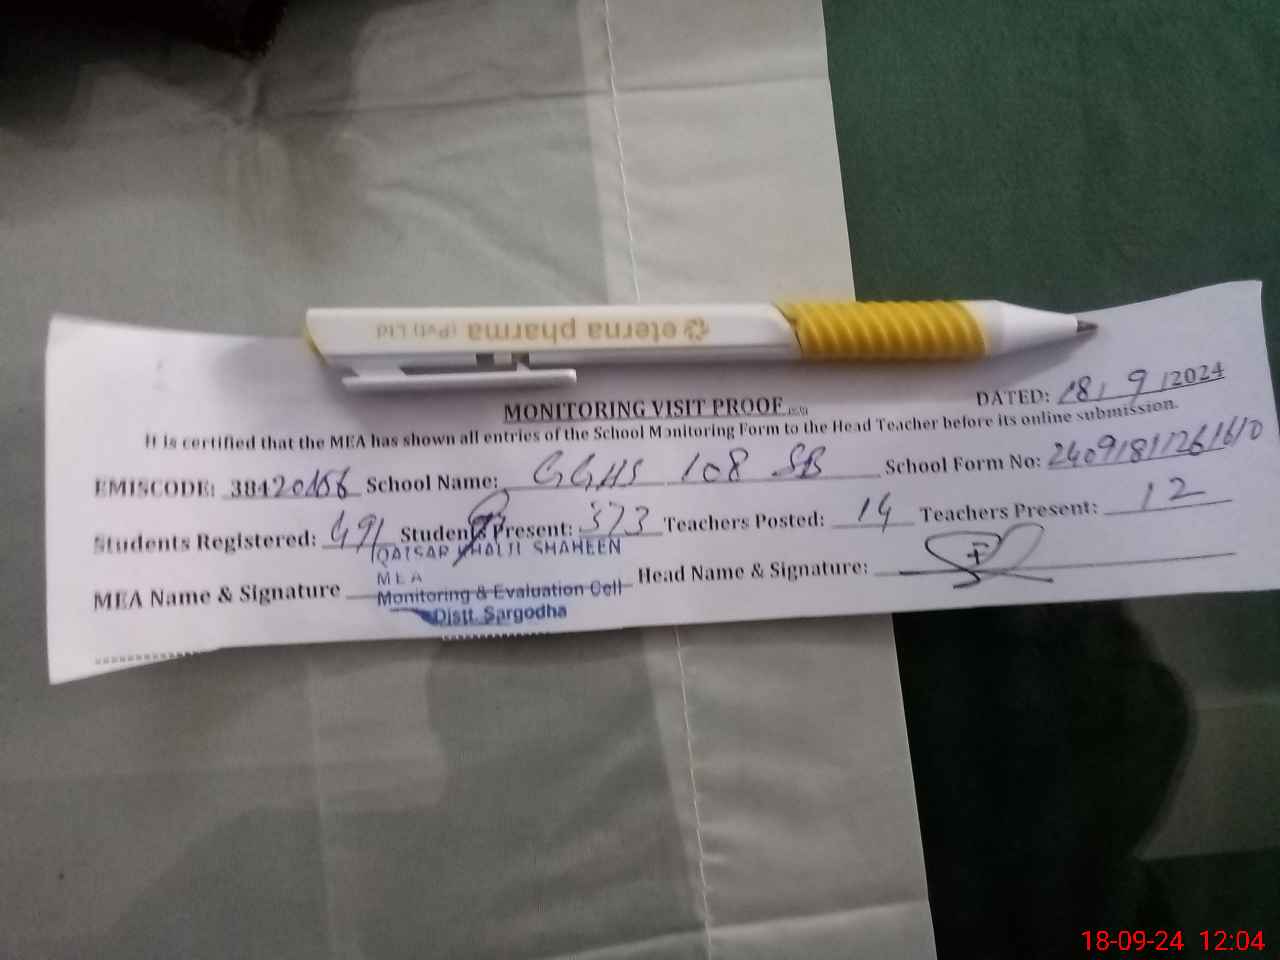 eterna pharma (Pvt) Ltd
MONITORING VISIT PROOF
DATED: 18/9/2024
It is certified that the MEA has shown all entries of the School Monitoring Form to the Head Teacher before its online submission.
EMISCODE: 38420166 School Name: GGHS 108 SB School Form No:
Students Registered: 491 Students Present: 373 Teachers Posted: 14 Teachers Present: 12
QAISAR KHALIL SHAHEEN
MEA
MEA Name & Signature Monitoring & Evaluation Cell Head Name & Signature:
Distt. Sargodha
18-09-24 12:04